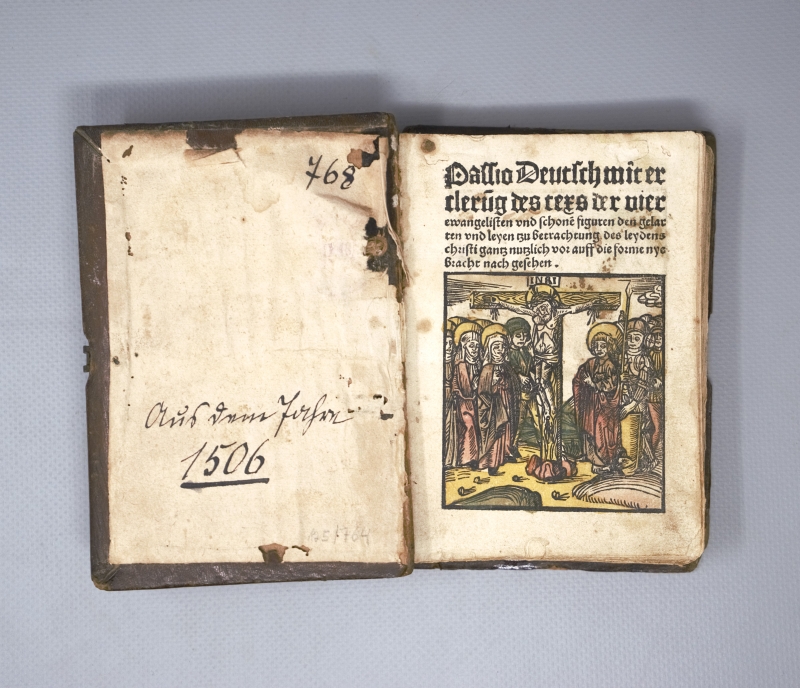 768
Aus dem Jahre
1506
Passio Deutsch mit er
clerũg des texs der vier
ewangelisten vnd schonē figuren den gelar
ten vnd leyen tzu betrachtung des leydens
christi gantz nutzlich vor auff die forme nye
bracht nach gesehen .
INRI